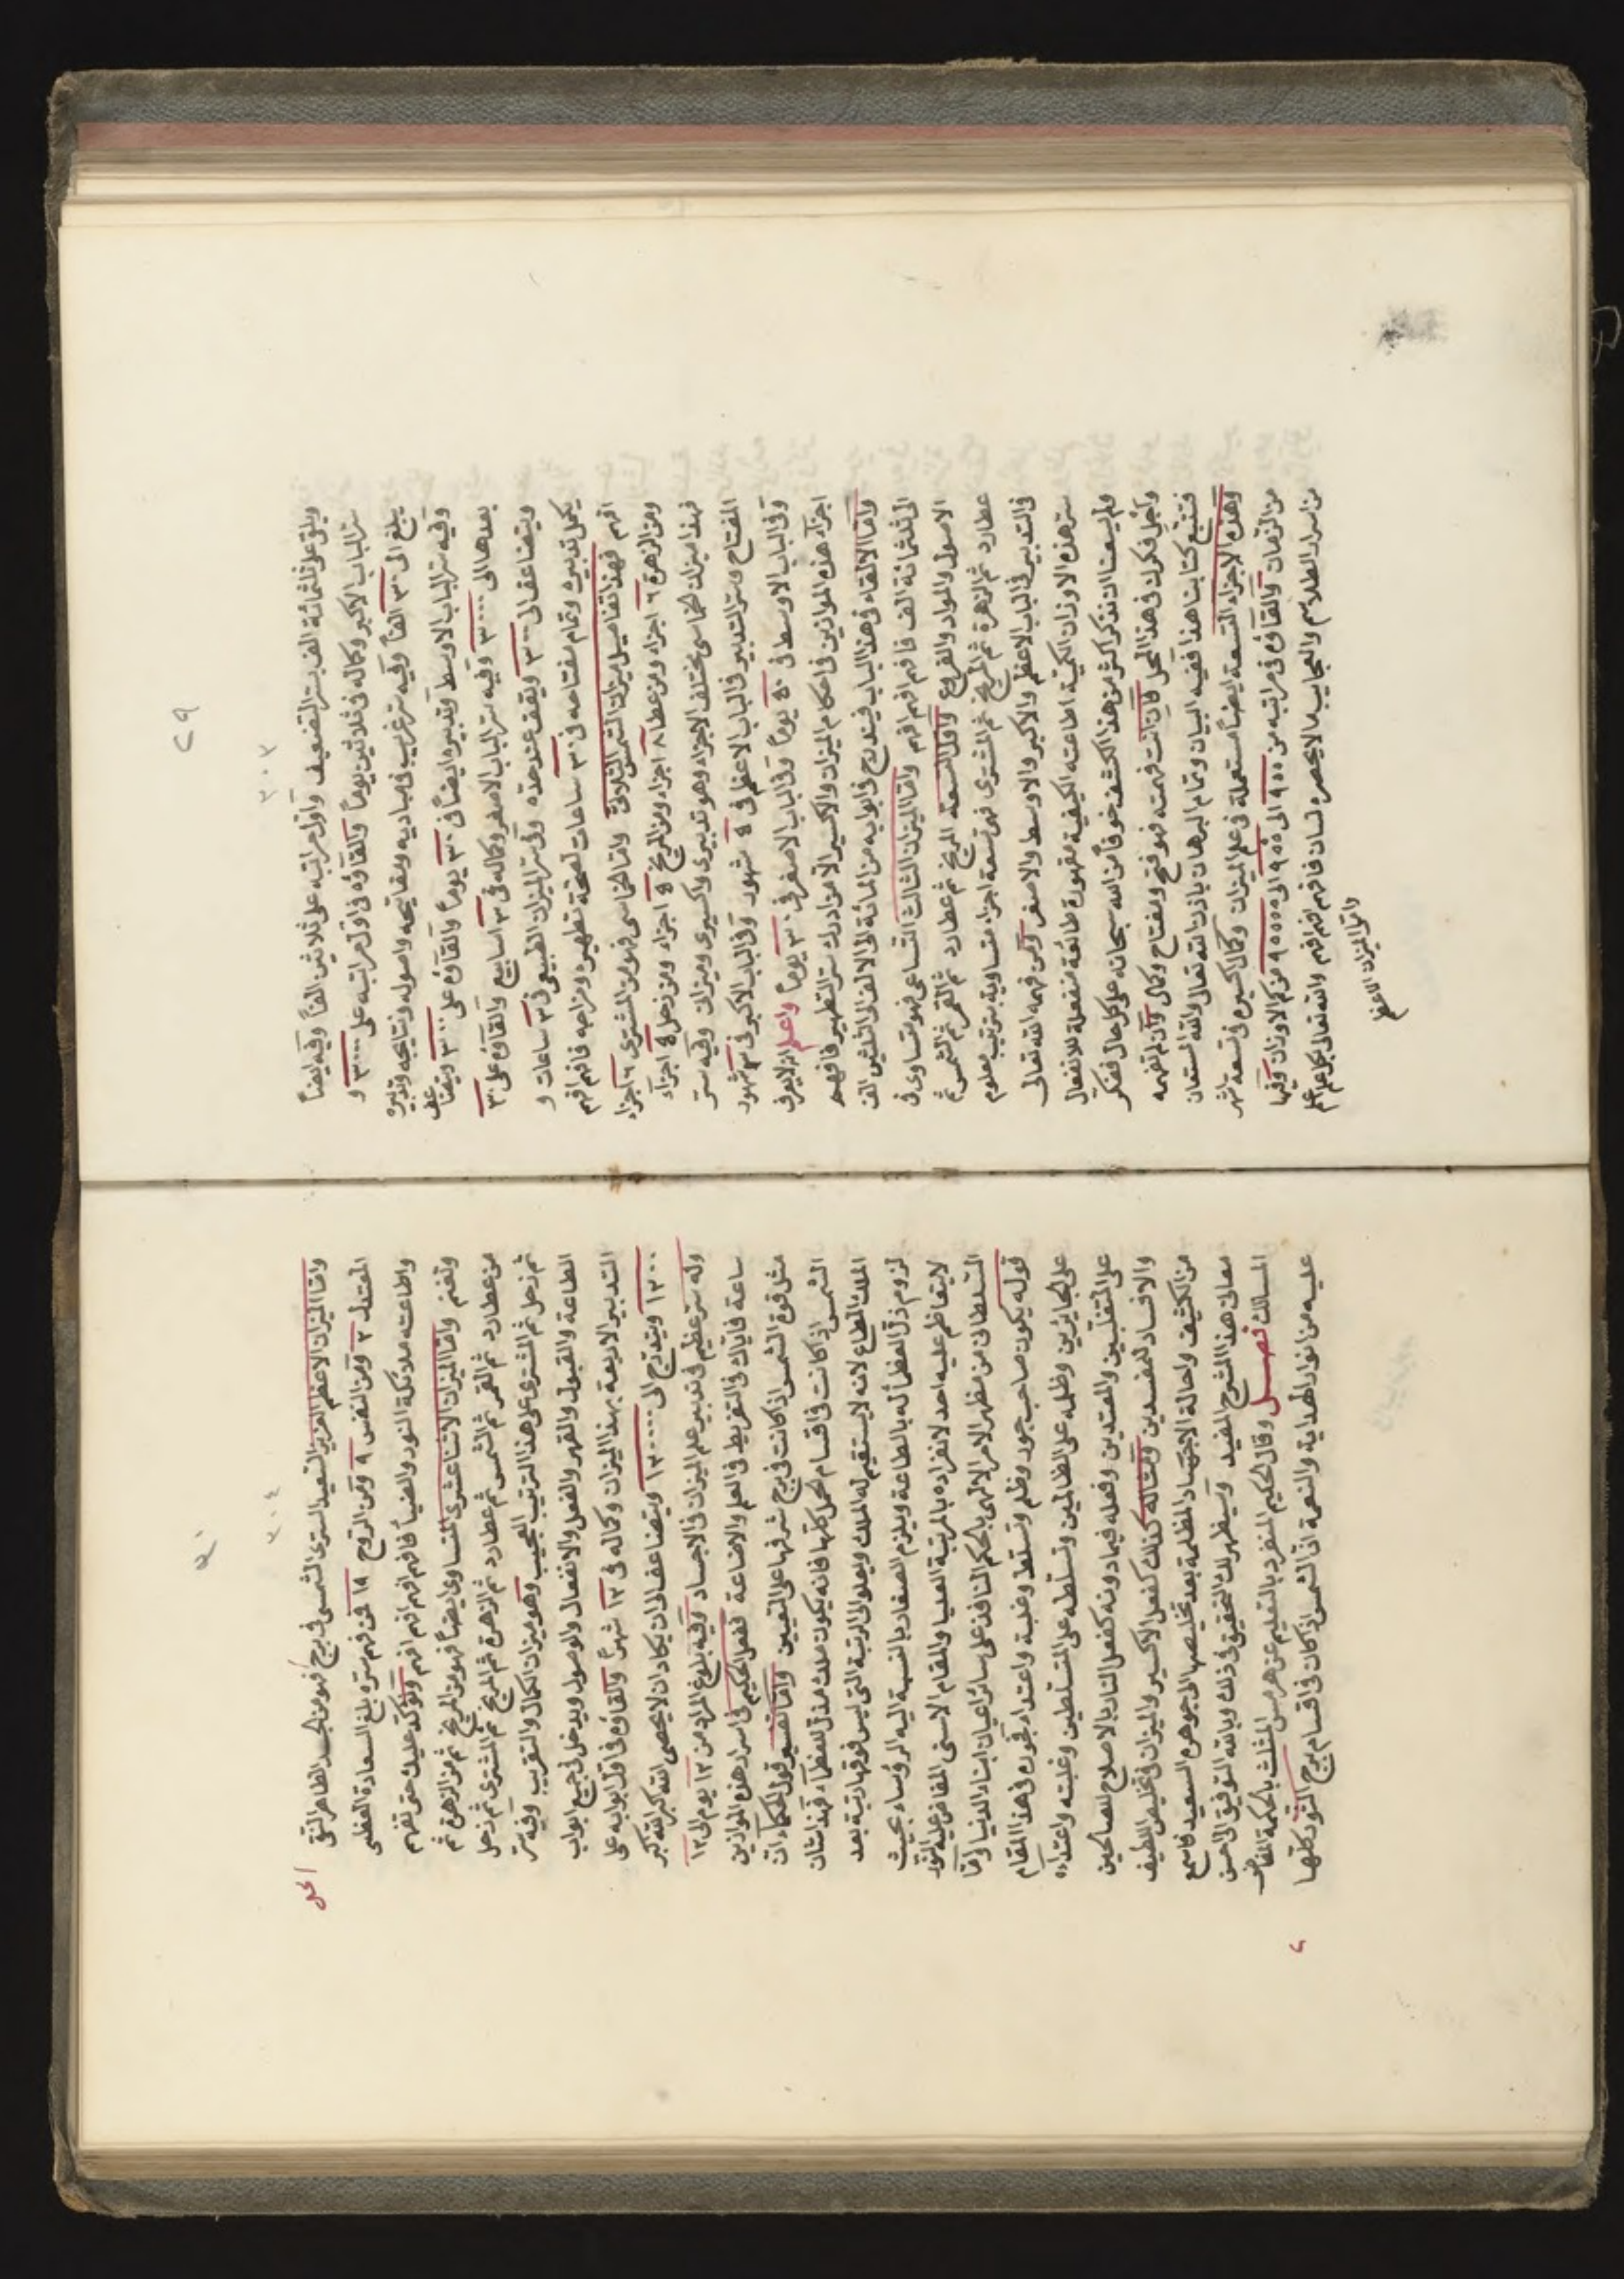 ٢٩
٣٠٣
ويلقى على ثلثمائة الف بسر التضعيف وأول مراتبه على ثلاثين الفاً وفيه ايضاً
سر الباب الاكبر وكماله فى ثلاثين يوماً والقاؤه فى اول مراتبه على ٣٠٠٠ و
يبلغ الى ٣٠ الفاً وفيه سر غريب فى مباديه ومفاتيحه واصوله ونتايجه وتدبيره
وفيه سر الباب الاوسط وتدبيره ايضاً فى ٣٠ يوماً والقاؤه على ٣٠٠ ويتضاعف
بعدها الى ٣٠٠٠ وفيه سر الباب الاصغر وكماله فى ٣ اسابيع والقاؤه على ٣٠
ويتضاعف الى ٣٠٠ ويقف عند حده وفى سر الميزان الطبيعى فى ٣ ساعات و
يكمل تدبيره وتمام مفتاحه فى ٣٠ ساعات لصحة تطهيره ومزاجه فافهم افهم
افهم فهذا تفاصيل ميزان الشمس الثلاثى واما الخماسى فهو من المشترى ٦ اجزاء
ومن الزهرة ٦ اجزاء ومن عطارد ٨ اجزاء ومن المريخ ٥ اجزاء ومن زحل ٥ اجزاء
فهذا ميزان خماسى مختلف الاجزاء وهو تدبيرى واكسيرى وميزان وفيه سر
المفتاح وسر التدبير فى الباب الاعظم فى ٥ شهور وفى الباب الاكبر فى ٣ شهور
وفى الباب الاوسط فى ٥٠ يوماً وفى الباب الاصغر فى ٣٠ يوماً واعلم ان لا يعرف
اجزاء هذه الموازين فى احكام الميزان والاكسير الا من ادرك سر التطهير فافهم
واما الالقاء فى هذا الباب فيندرج فى ابوابه من المائة الى الالف الى الثلثين الف
الى ثلثمائة الف فافهم افهم افهم واما الميزان الثالث التساعى فهو تساوى فى
الاصول والمواد والفروع واول التسعة المريخ ثم عطارد ثم القمر ثم الشمس ثم
عطارد ثم الزهرة ثم المريخ ثم المشترى فهو تسعة اجزاء متساوية بترتيب معلوم
فى التدبير فى الباب الاعظم والاكبر والاوسط والاصغر ومن فهمه الله تعالى
سر هذه الاوزان الكمية اطاعته الكيفية مقهورة طائعة منفعلة للانفعال
ولم يسعنا ان نذكر اكثر من هذا الكشف خوفاً من الله سبحانه على كل حال ففكر
وأجل فكرك فى هذا المحل فان انت فهمته فهو فتح ومفتاح وكمال وان لم تفهمه
فتتبع كتابنا هذا ففيه البيان وتمام البرهان باذن الله تعالى والله المستعان
وهذه الاجزاء التسعة ايضاً مستعملة فى علم الميزان وكمال اكسيره فى تسعة اشهر
من الزمان والقاؤه فى مراتبه من ٩٠٠ الى ٩٠٠٠ الى ٩٠٠٠٠ من كم الاوزان وفيها
من اسرار الطلاسم والعجايب ما لا يحصره لسان فافهم افهم افهم والله تعالى بكل علم اعلم
واما الميزان الاعظم
٣٠
٣٠٤
واما الميزان الاعظم العزيز السعيد السرى الشمسى فى برج فهو من الجسد الطاهر النقى
الحمل
المعتدل ٣ ومن النفس ٩ ومن الروح ١٨ فمن فهم سره بلغ السعادة العظمى
واطاعته ملائكة النور والضيا فافهم افهم افهم ونؤكد عليك حتى تفهم
وتغنم واما الميزان الاثنا عشرى المتساوى ايضاً فهو من المريخ ثم من الزهرة ثم
من عطارد ثم القمر ثم الشمس ثم عطارد ثم الزهرة ثم المريخ ثم المشترى ثم زحل
ثم زحل ثم المشترى على هذا الترتيب العجيب وهو ميزان الكمال والتقريب وفيه سر
الطاعة والقبول والقهر والفعل والانفعال والوصول ويدخل فى جميع ابواب
التدبير الاربعة بهذا الميزان وكماله فى ١٢ شهراً والقاؤه فى اول ابوابه على
١٢٠٠ ويتدرج الى ١٢٠٠٠ ويتضاعف الى ان يكاد ان لا يحصى الله اكبر الله اكبر
وله سر عظيم فى تدبير علم الميزان فى الاجساد وفيه بلوغ المراد من ١٢ يوم الى ١٢
ساعة فاياك والتفريط فى العلم والاضاعة ففعل الحكيم فى اسرار هذه الموازين
مثل قوة الشمس اذا كانت فى برج شرفها على التعيين واما تفسير قول الحكماء ان
الشمس اذا كانت فى اقسام الحمل كلها فانه يكون ملك مذل للعظماء فهذا شان
الملك المطاع لانه لا يستقيم له الملك ويعلو الى الرتبة التى ليس فوقها رتبة بعد
لزوم ذل العظماء له بالطاعة ويلزم الصغار بالنسبة اليه الرؤساء بحيث
لا يتعاظم عليه احد لانفراده بالمرتبة العليا والمقام الاسنى المفاض عليه النور
السلطانى من مظهر الامر الالهى بالحكم النافذ على سائر اعيان ابناء الدنيا واما
قوله يكون صاحب جور وظلم وتسلط وغلبة واعتداء فجوره فى هذا المقام
على الجايرين وظلمه على الظالمين وتسلطه على المتسلطين وغلبته واعتداءه
على المتغلبين والمعتدين وفعله فيما دونه كفعل النار بالاصلاح للصالحين
والافساد للمفسدين ومثاله كذلك كفعل الاكسير والميزان فى تخليص اللطيف
من الكثيف واحالة الاجساد المظلمة بعد تخليصها الى جوهره السعيد فاسمع
معانى هذا الشرح المفيد وسيظهر لك التحقيق فى ذلك وبالله التوفيق الى احسن
المسالك فصل وقال الحكيم المنفرد بالتقليم عن هرمس المثلث بالحكمة المفاض
عليه من انوار الهداية والنعمة ان الشمس اذا كان فى اقسام برج الثور كلها